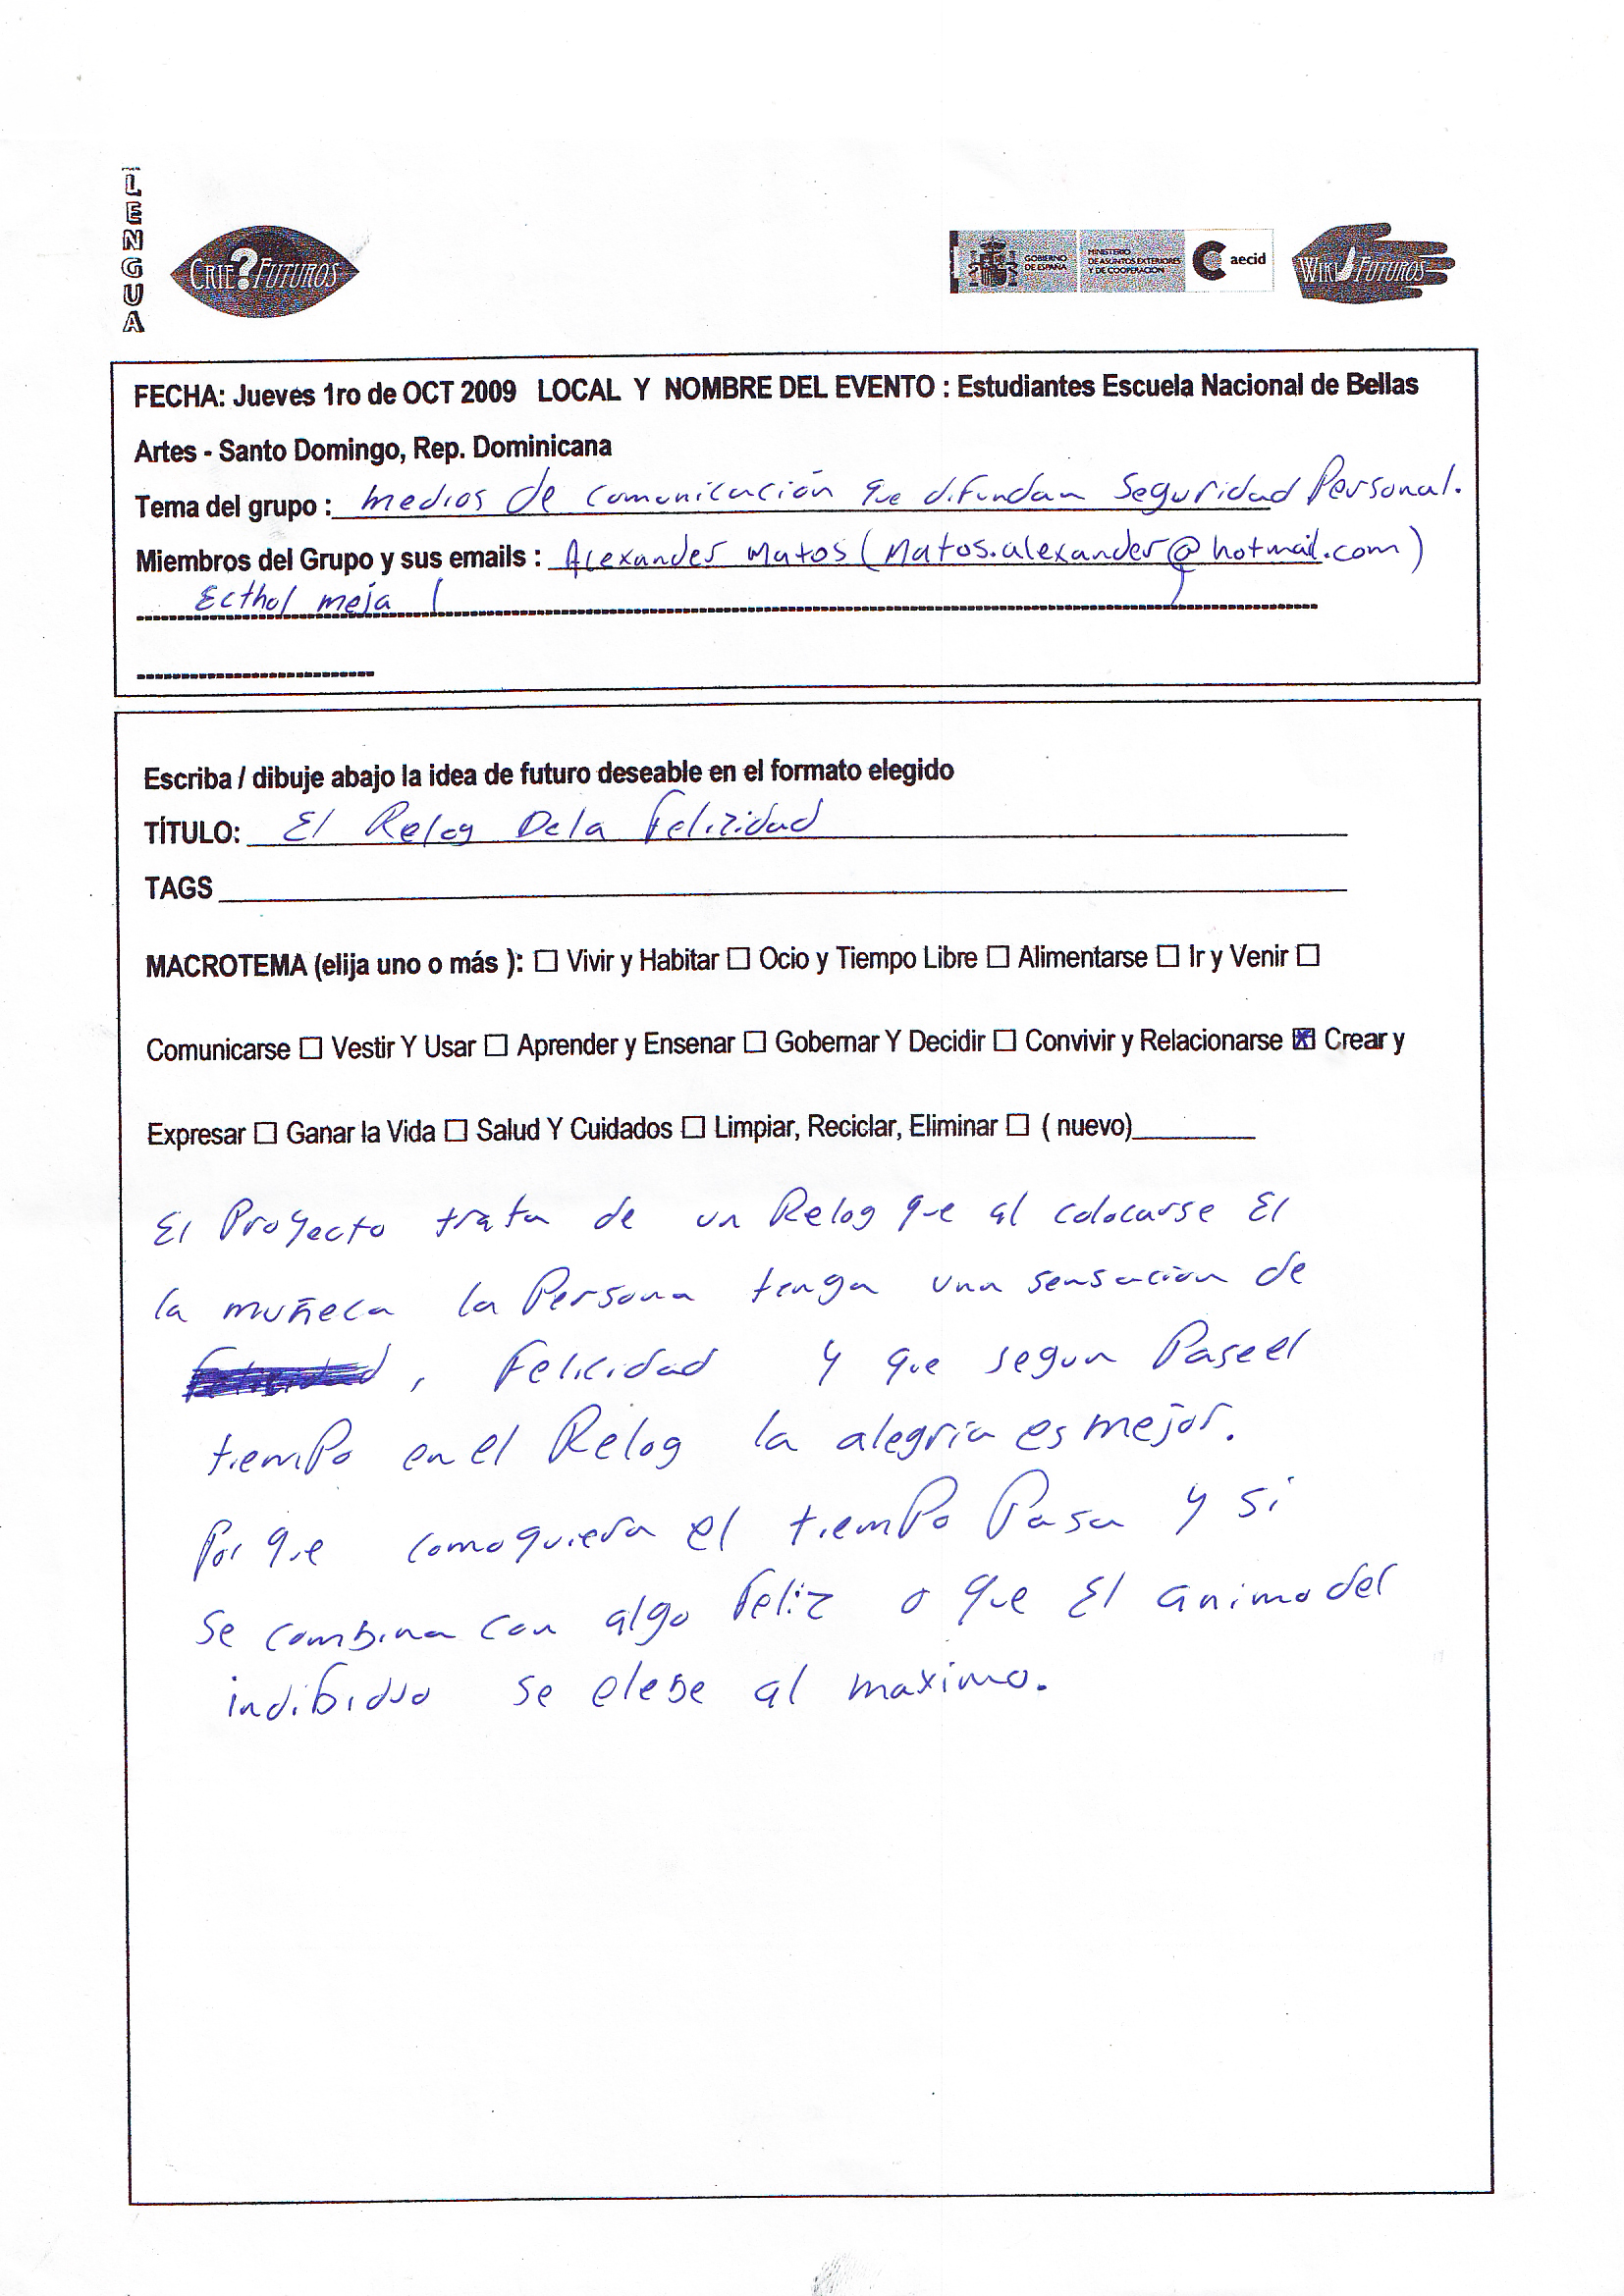 LENGUA
CRIE?FUTUROS
GOBIERNO DE ESPAÑA
MINISTERIO DE ASUNTOS EXTERIORES Y DE COOPERACIÓN
aecid
WIKIFUTUROS
FECHA: Jueves 1ro de OCT 2009 LOCAL Y NOMBRE DEL EVENTO : Estudiantes Escuela Nacional de Bellas
Artes - Santo Domingo, Rep. Dominicana
Tema del grupo : medios de comunicación que difundan Seguridad Personal.
Miembros del Grupo y sus emails : Alexander Matos (Matos.alexander@hotmail.com)
meja ( )
Escriba / dibuje abajo la idea de futuro deseable en el formato elegido
TÍTULO: El Relog Dela felizidad
TAGS
MACROTEMA (elija uno o más ): ☐ Vivir y Habitar ☐ Ocio y Tiempo Libre ☐ Alimentarse ☐ Ir y Venir ☐
Comunicarse ☐ Vestir Y Usar ☐ Aprender y Ensenar ☐ Gobernar Y Decidir ☐ Convivir y Relacionarse ☒ Crear y
Expresar ☐ Ganar la Vida ☐ Salud Y Cuidados ☐ Limpiar, Reciclar, Eliminar ☐ ( nuevo)
El Proyecto trata de un Relog que al colocarse El
la muñeca la Persona tenga una sensacion de
, Felicidad y que segun Pase el
tiempo en el Relog la alegria es mejor.
Por que comoquiera el tiempo Pasa y si
se combina con algo feliz o que El animo del
indibiduo se elebe al maximo.